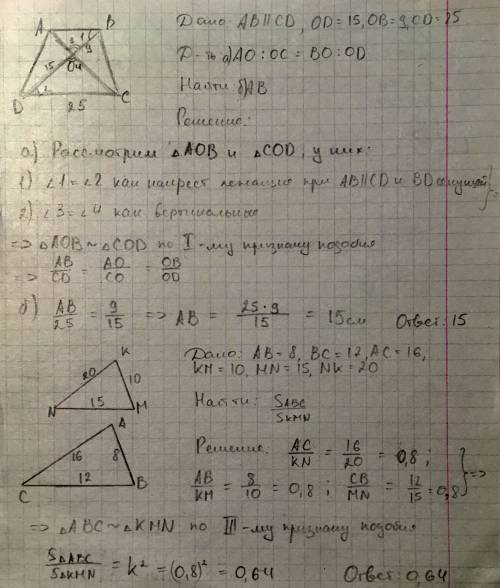 A B
Дано: AB||CD, OD=15, OB=9, CD=25
3 1 9
15 O 4
Д-ть а) AO : OC = BO : OD
2
Найти: б) AB
D 25 C
Решение:
а) Рассмотрим △AOB и △COD, у них:
1) ∠1=∠2 как накрест лежащие при AB||CD и BD секущей
2) ∠3=∠4 как вертикальные
=> △AOB ~ △COD по I-му признаку подобия
=> AB/CD = AO/CO = OB/OD
б) AB/25 = 9/15 => AB = 25·9/15 = 15см Ответ: 15
K
20 10
N 15 M
Дано: AB=8, BC=12, AC=16,
KM=10, MN=15, NK=20
Найти: S ABC / S KMN
A
16 8
C 12 B
Решение: AC/KN = 16/20 = 0,8;
AB/KM = 8/10 = 0,8; CB/MN = 12/15 = 0,8 } =>
=> △ABC ~ △KMN по III-му признаку подобия
S△ABC / S△KMN = k² = (0,8)² = 0,64 Ответ: 0,64